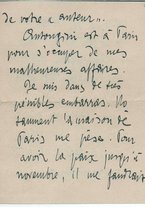 de votre "auteur".
Antongini est à Paris
pour s'occuper de mes
malheureuses affaires.
Je suis dans de très
pénibles embarras.
tamment la maison de
Paris me pèse. Pour
avoir la paix jusqu'à
novembre, il me faudrait